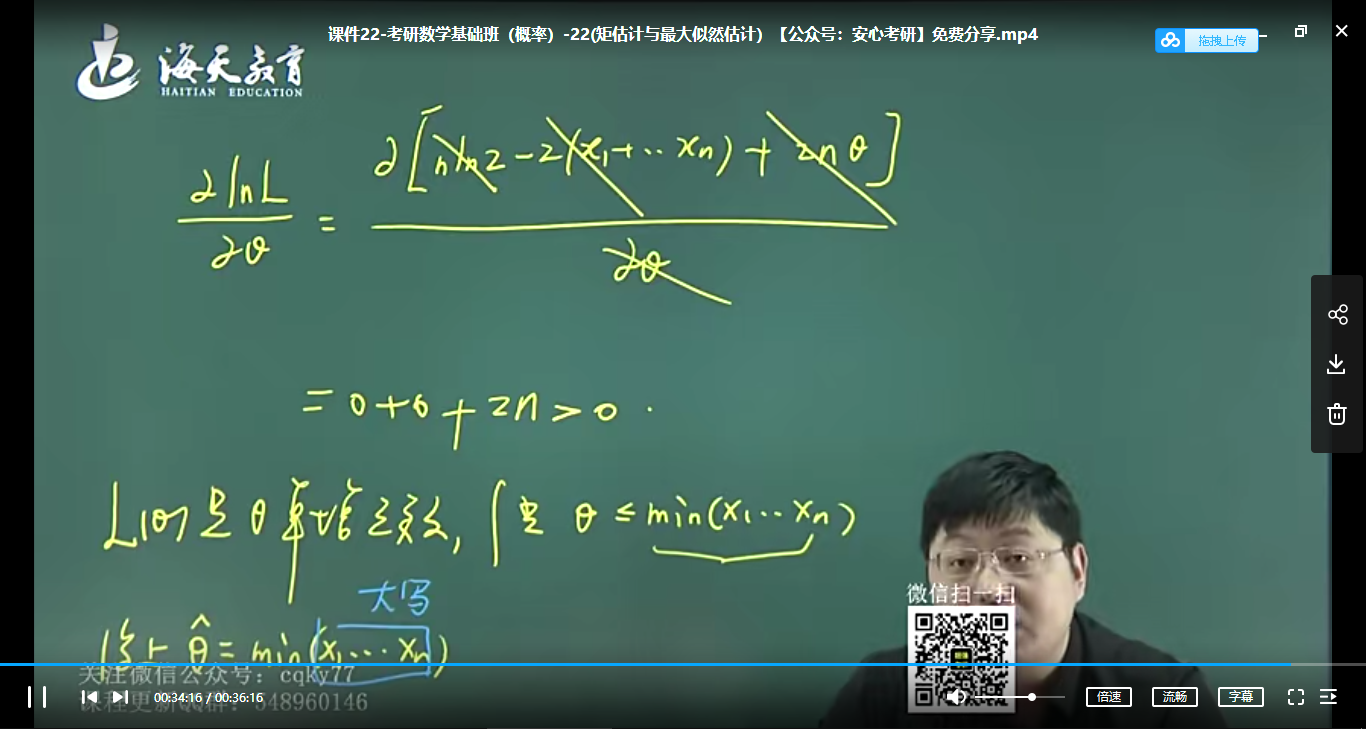 课件22-考研数学基础班（概率）-22(矩估计与最大似然估计）【公众号：安心考研】免费分享.mp4
拖拽上传
海天教育
HAITIAN EDUCATION
∂[n ln 2 - 2(x₁+··xₙ) + 2nθ]
∂lnL
=
∂θ
∂θ
= 0+0+2n>0.
L(θ)是θ单增函数, 但 θ ≤ min(x₁··xₙ)
大写
综上 θ̂ = min(x₁··· xₙ)
微信扫一扫
关注微信公众号：cqky77
课程更新QQ群：548960146
00:34:16 / 00:36:16
倍速
流畅
字幕